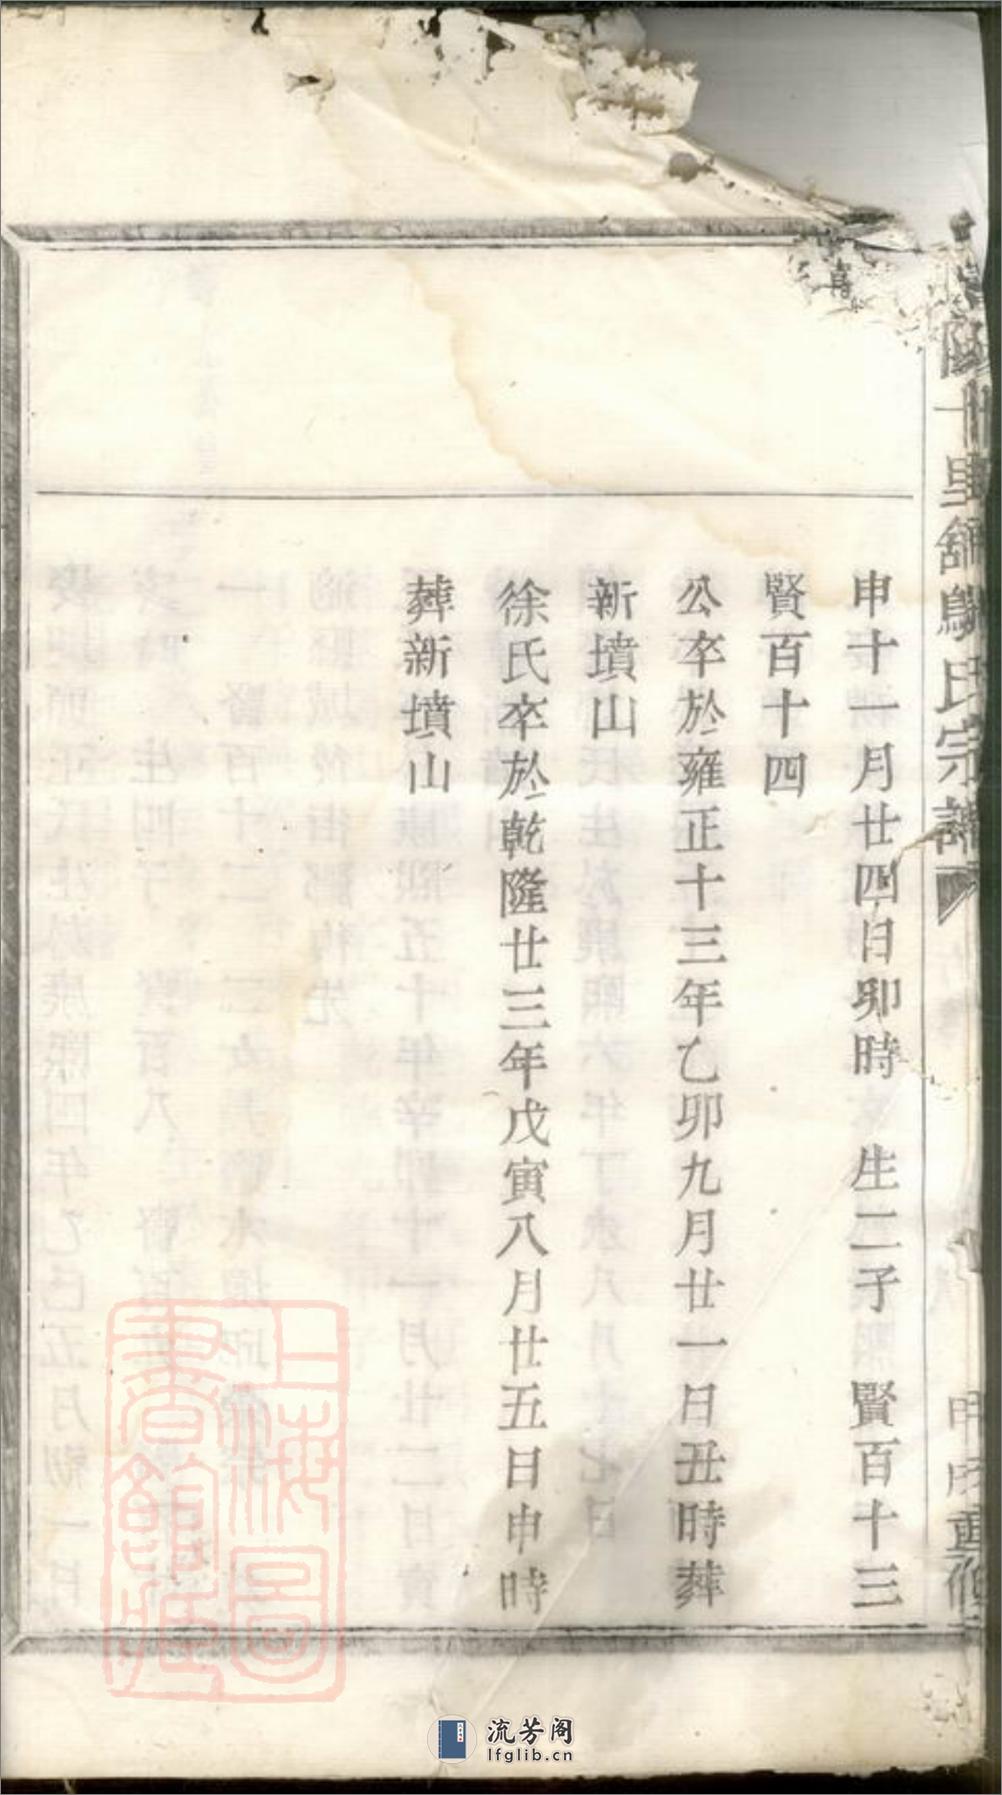 申十一月廿四日卯時　生二子　賢百十三
賢百十四
公卒於雍正十三年乙卯九月廿一日丑時葬
新墳山
徐氏卒於乾隆廿三年戊寅八月廿五日申時
葬新墳山
氏宗譜
重修
上海圖書館藏
流芳阁
lfglib.cn